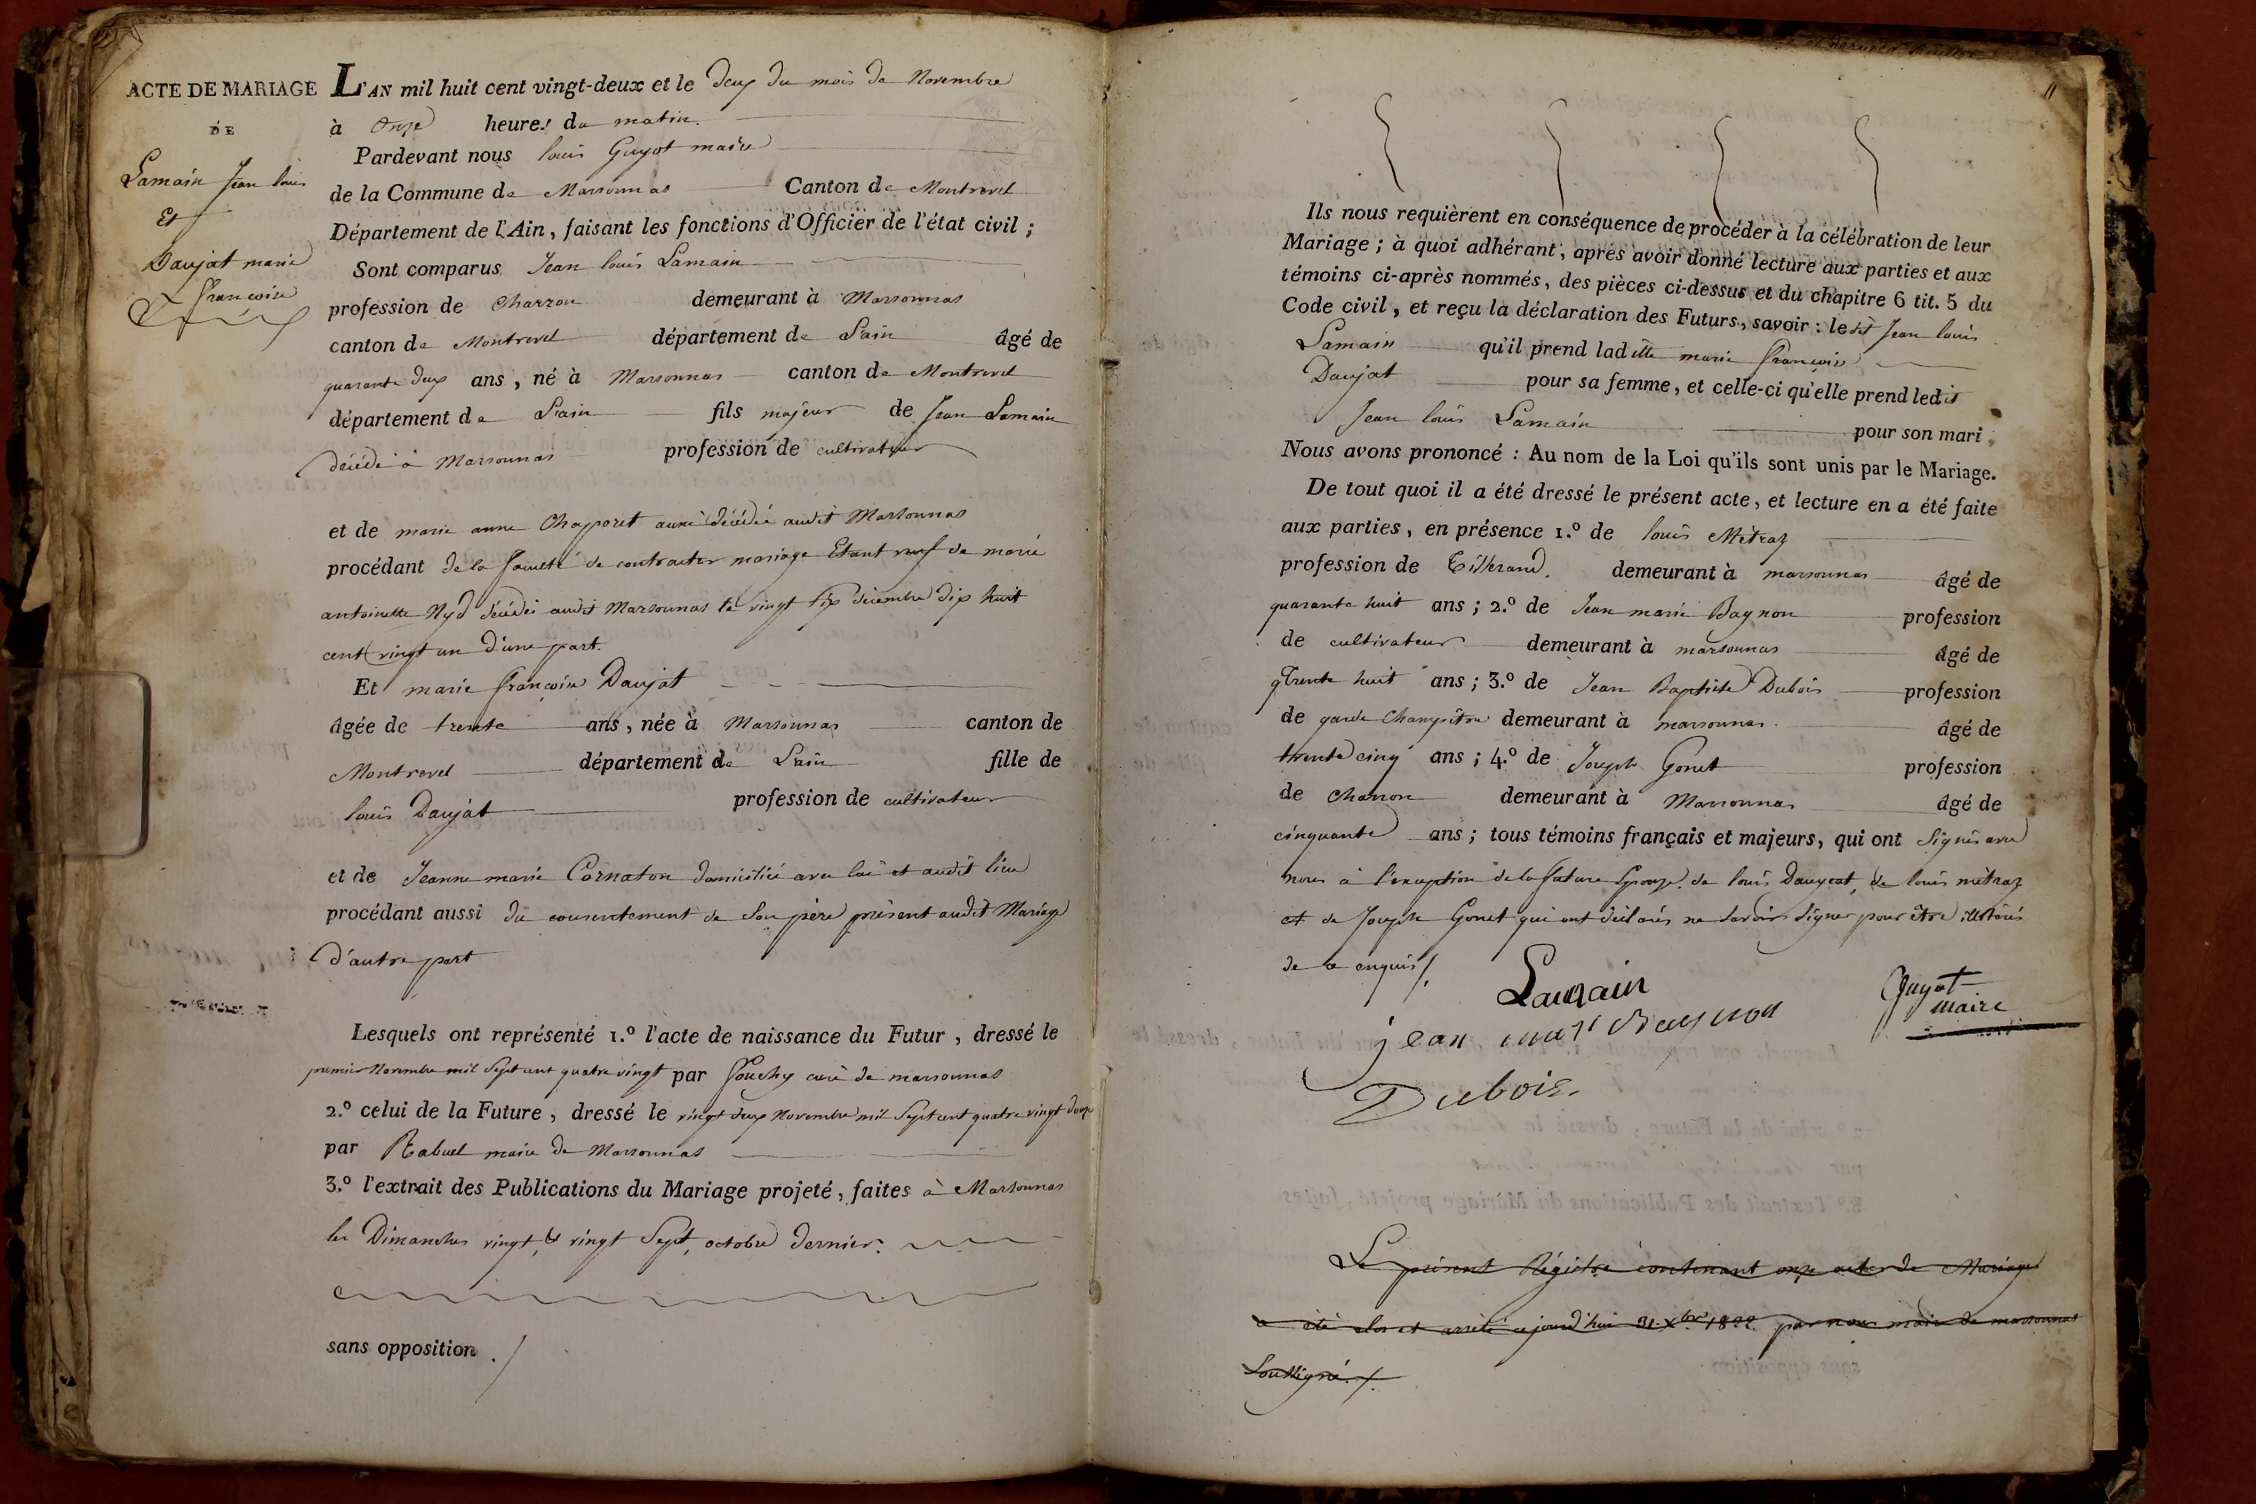 ACTE DE MARIAGE
DE
Lamain Jean louis
Et
Daujat marie
françoise
L'AN mil huit cent vingt-deux et le deux du mois de Novembre
à onze heures du matin.
Pardevant nous louis Guyot maire
de la Commune de Marsonnas Canton de Montrevel
Département de l'Ain, faisant les fonctions d'Officier de l'état civil ;
Sont comparus Jean louis Lamain
profession de Charron demeurant à Marsonnas
canton de Montrevel département de L'ain âgé de
quarante deux ans, né à Marsonnas canton de Montrevel
département de L'ain fils majeur de Jean Lamain
décédé à Marsonnas profession de cultivateur
et de marie anne Chaporet aussi décédée audit Marsonnas
procédant de la faculté de contracter mariage Etant veuf de marie
antoinette Nyd décédée audit Marsonnas le vingt six décembre dix huit
cent vingt un d'une part.
Et marie françoise Daujat
âgée de trente ans, née à Marsonnas canton de
Montrevel département de L'ain fille de
louis Daujat profession de cultivateur
et de Jeanne marie Cornaton domiciliée avec lui et audit lieu
procédant aussi du consentement de son père présent audit Mariage
d'autre part
Lesquels ont représenté 1.º l'acte de naissance du Futur, dressé le
premier Novembre mil sept cent quatre vingt par fouchy curé de marsonnas
2.º celui de la Future, dressé le vingt deux Novembre mil sept cent quatre vingt douze
par Rabuel maire de Marsonnas
3.º l'extrait des Publications du Mariage projeté, faites à Marsonnas
les Dimanches vingt, & vingt sept, octobre dernier.
sans opposition ./
11
Ils nous requièrent en conséquence de procéder à la célébration de leur
Mariage ; à quoi adhérant, après avoir donné lecture aux parties et aux
témoins ci-après nommés, des pièces ci-dessus et du chapitre 6 tit. 5 du
Code civil, et reçu la déclaration des Futurs, savoir : ledit Jean louis
Lamain qu'il prend laditte marie françoise
Daujat pour sa femme, et celle-ci qu'elle prend ledit
Jean louis Lamain pour son mari ;
Nous avons prononcé : Au nom de la Loi qu'ils sont unis par le Mariage.
De tout quoi il a été dressé le présent acte, et lecture en a été faite
aux parties, en présence 1.º de louis Métraz
profession de Tisserand. demeurant à marsonnas âgé de
quarante huit ans ; 2.º de Jean marie Bagnon profession
de cultivateur demeurant à marsonnas âgé de
trente huit ans ; 3.º de Jean Baptiste Dubois profession
de garde champêtre demeurant à marsonnas. âgé de
trente cinq ans ; 4.º de Joseph Gonet profession
de charron demeurant à Marsonnas âgé de
cinquante ans ; tous témoins français et majeurs, qui ont signés avec
nous à l'exception de la future Epouze. de louis Daujeat, de louis métraz
et de Joseph Gonet qui ont déclarés ne savoir signer pour être illétérés
de ce enquis /.
Lamain
Guyot
maire
jean mari Bagnon
Dubois
Le présent Régistre contenant onze actes de Mariage
a été clos et arrêté cejourd'hui 31 Xbre 1822 par nous maire de marsonnas
Soussigné./.